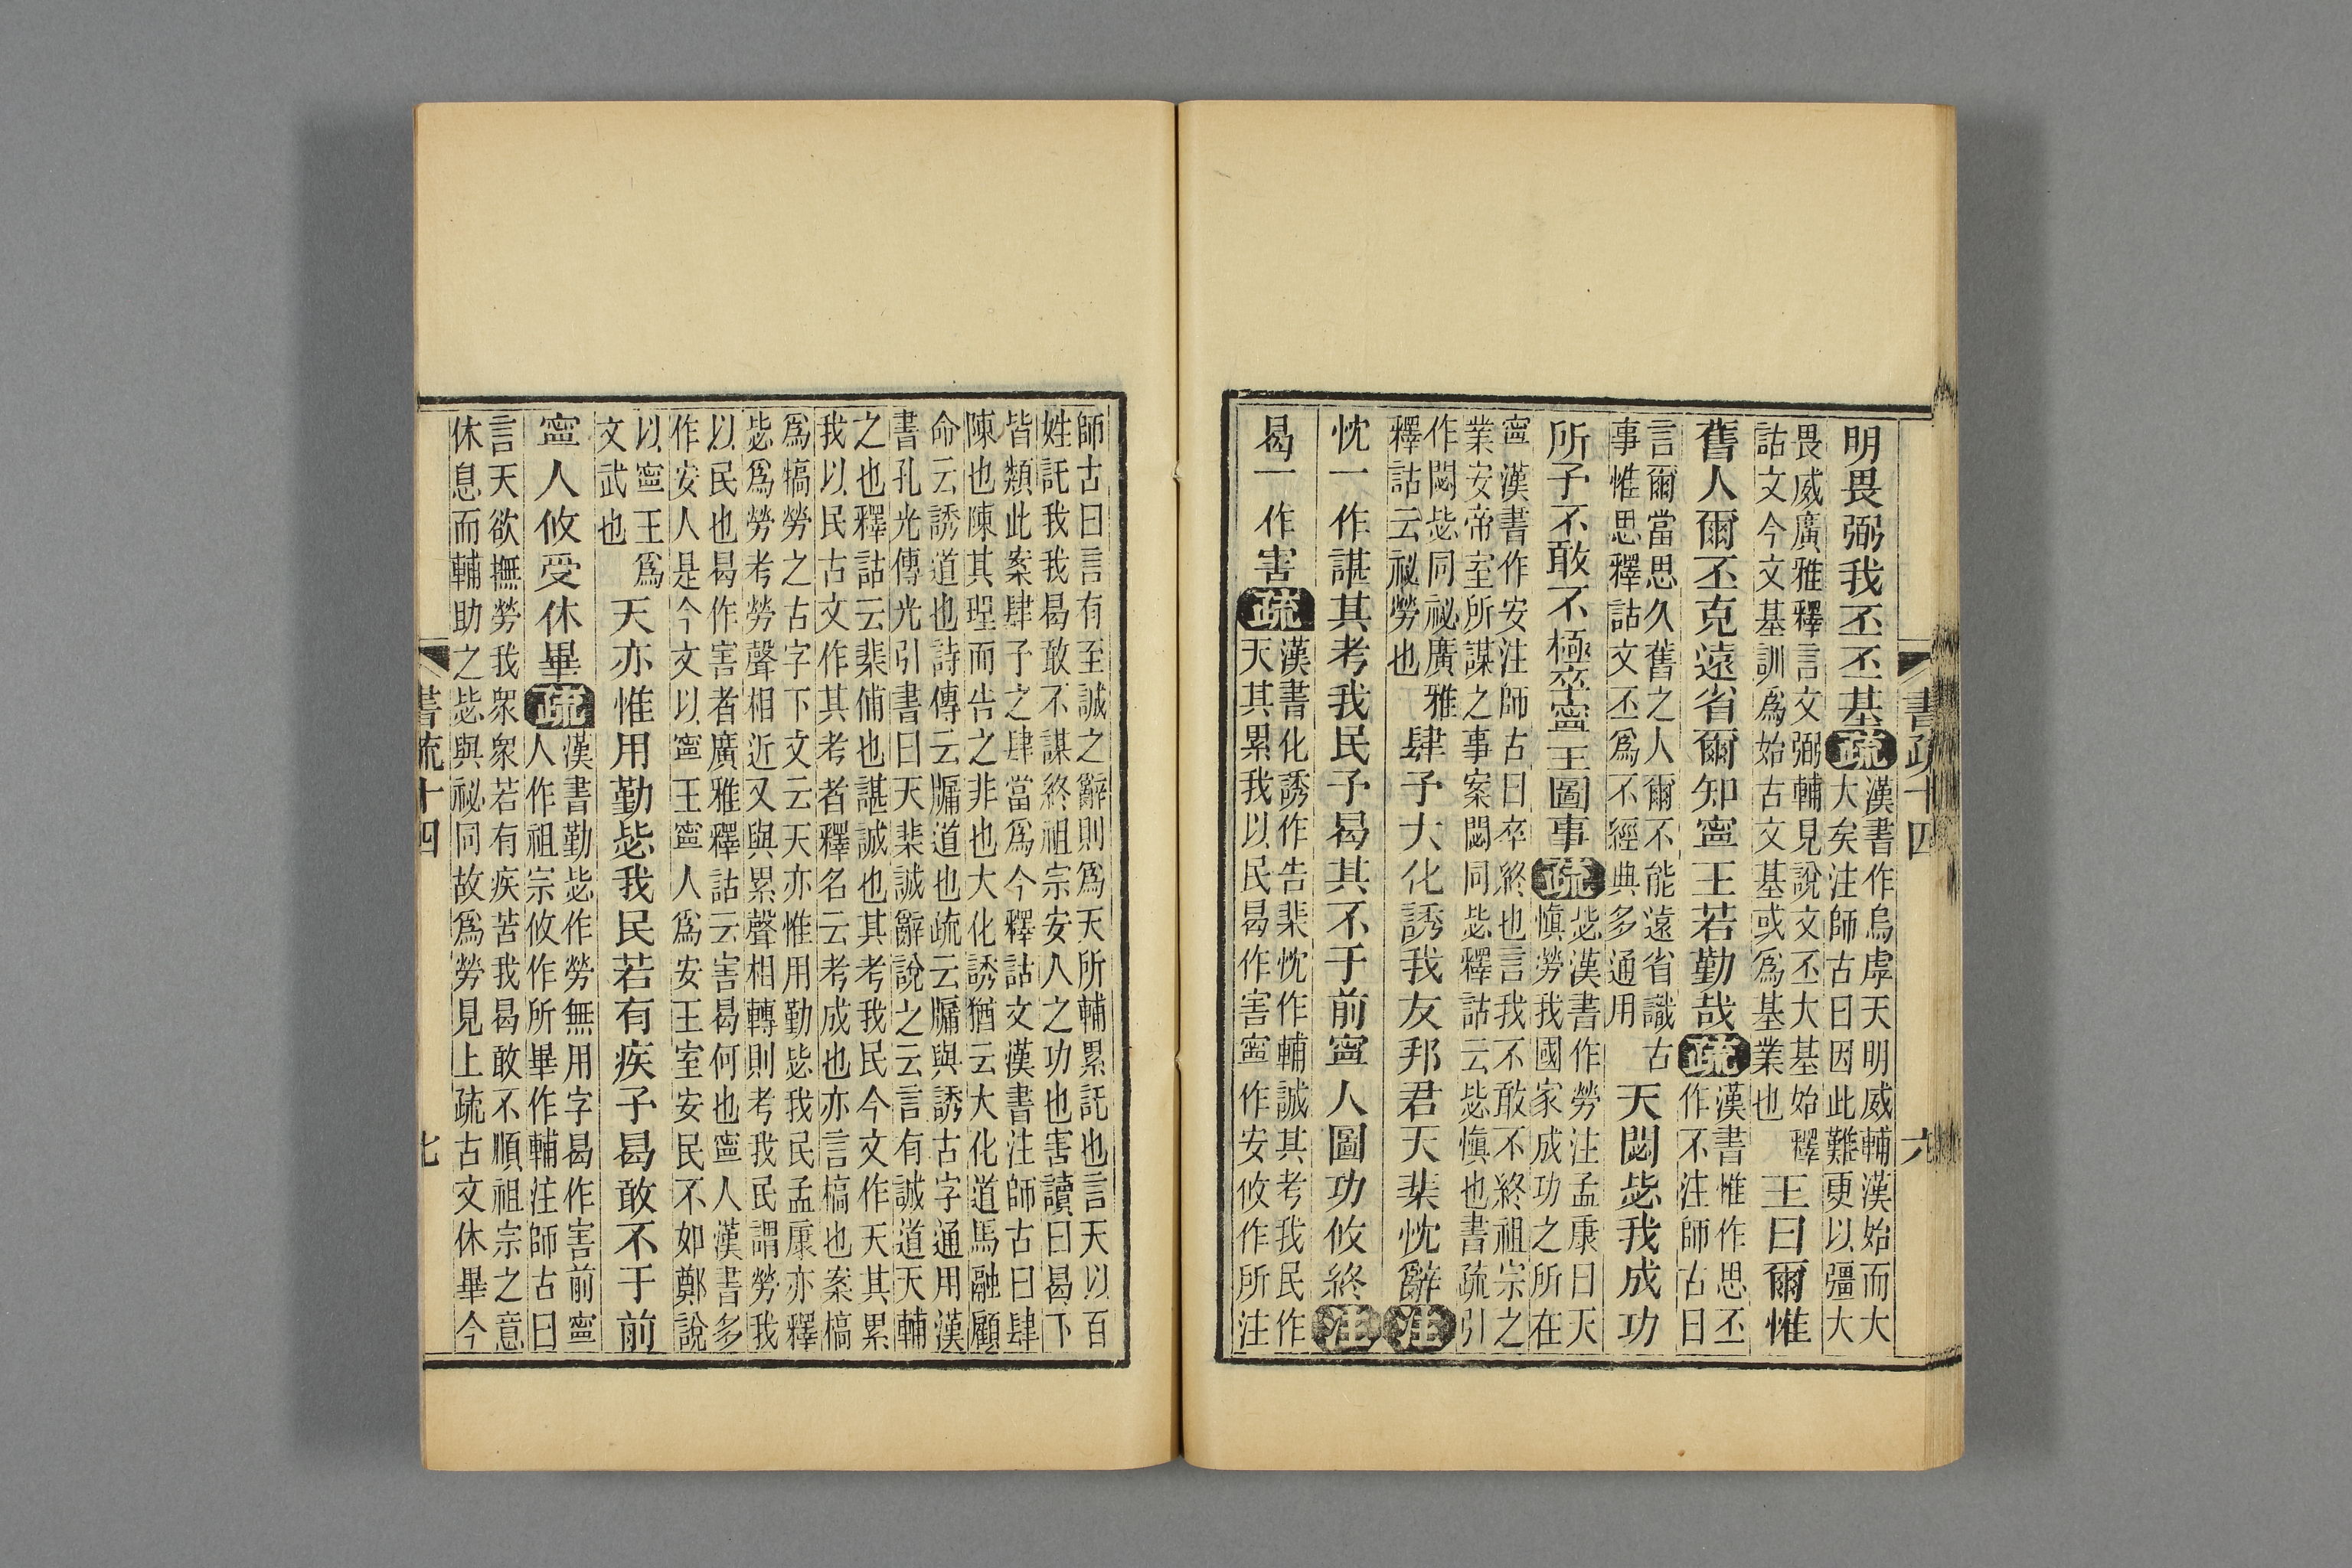 書疏十四
六
明畏弼我丕丕基疏漢書作烏虖天明威輔漢始而大
大矣注師古曰因此難更以彊大
畏威廣雅釋言文弼輔見說文丕大基始釋
詁文今文基訓爲始古文基或爲基業也
王曰爾惟
舊人爾丕克遠省爾知寧王若勤哉疏漢書惟作思丕
作不注師古曰
言爾當思久舊之人爾不能遠省識古
事惟思釋詁文丕爲不經典多通用
天閟毖我成功
所予不敢不極卒寧王圖事疏毖漢書作勞注孟康曰天
愼勞我國家成功之所在
寧漢書作安注師古曰卒終也言我不敢不終祖宗之
業安帝室所謀之事案閟同毖釋詁云毖愼也書疏引
作閟毖同祕廣雅
釋詁云祕勞也
肆予大化誘我友邦君天棐忱辭注
忱一作諶其考我民予曷其不于前寧人圖功攸終注
曷一作害疏漢書化誘作告棐忱作輔誠其考我民作
天其累我以民曷作害寧作安攸作所注
師古曰言有至誠之辭則爲天所輔累託也言天以百
姓託我我曷敢不謀終祖宗安人之功也害讀曰曷下
皆類此案肆予之肆當爲今釋詁文漢書注師古曰肆
陳也陳其理而告之非也大化誘猶云大化道馬融顧
命云誘道也詩傳云牖道也疏云牖與誘古字通用漢
書孔光傳光引書曰天棐諶辭說之云言有誠道天輔
之也釋詁云棐俌也諶誠也其考我民今文作天其累
我以民古文作其考者釋名云考成也亦言槁也案槁
爲犒勞之古字下文云天亦惟用勤毖我民孟康亦釋
毖爲勞考勞聲相近又與累聲相轉則考我民謂勞我
以民也曷作害者廣雅釋詁云害曷何也寧人漢書多
作安人是今文以寧王寧人爲安王室安民不如鄭說
以寧王爲
文武也
天亦惟用勤毖我民若有疾予曷敢不于前
寧人攸受休畢疏漢書勤毖作勞無用字曷作害前寧
人作祖宗攸作所畢作輔注師古曰
言天欲撫勞我衆衆若有疾苦我曷敢不順祖宗之意
休息而輔助之毖與祕同故爲勞見上疏古文休畢今
書疏十四
七